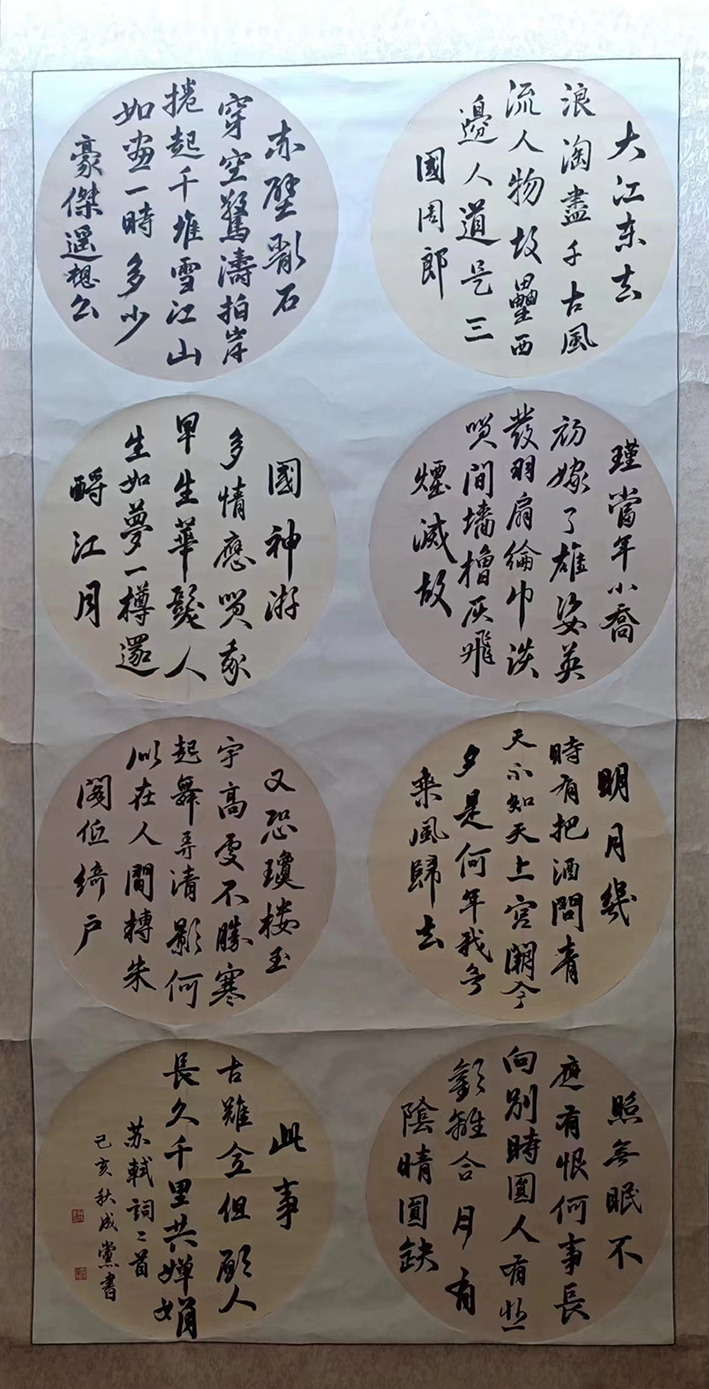 大江东去
浪淘盡千古風
流人物故壘西
邊人道是三
國周郎
赤壁亂石
穿空驚濤拍岸
捲起千堆雪江山
如畫一時多少
豪傑遥想公
瑾當年小喬
初嫁了雄姿英
發羽扇綸巾談
笑間墻櫓灰飛
煙滅故
國神游
多情應笑我
早生華髮人
生如夢一樽還
酹江月
明月幾
時有把酒問青
天不知天上宫闕今
夕是何年我欲
乘風歸去
又恐瓊楼玉
宇高處不勝寒
起舞弄清影何
似在人間轉朱
閣低綺户
照無眠不
應有恨何事長
向别時圓人有悲
歡離合月有
陰晴圓缺
此事
古難全但願人
長久千里共嬋娟
苏軾詞二首
己亥秋成黨書